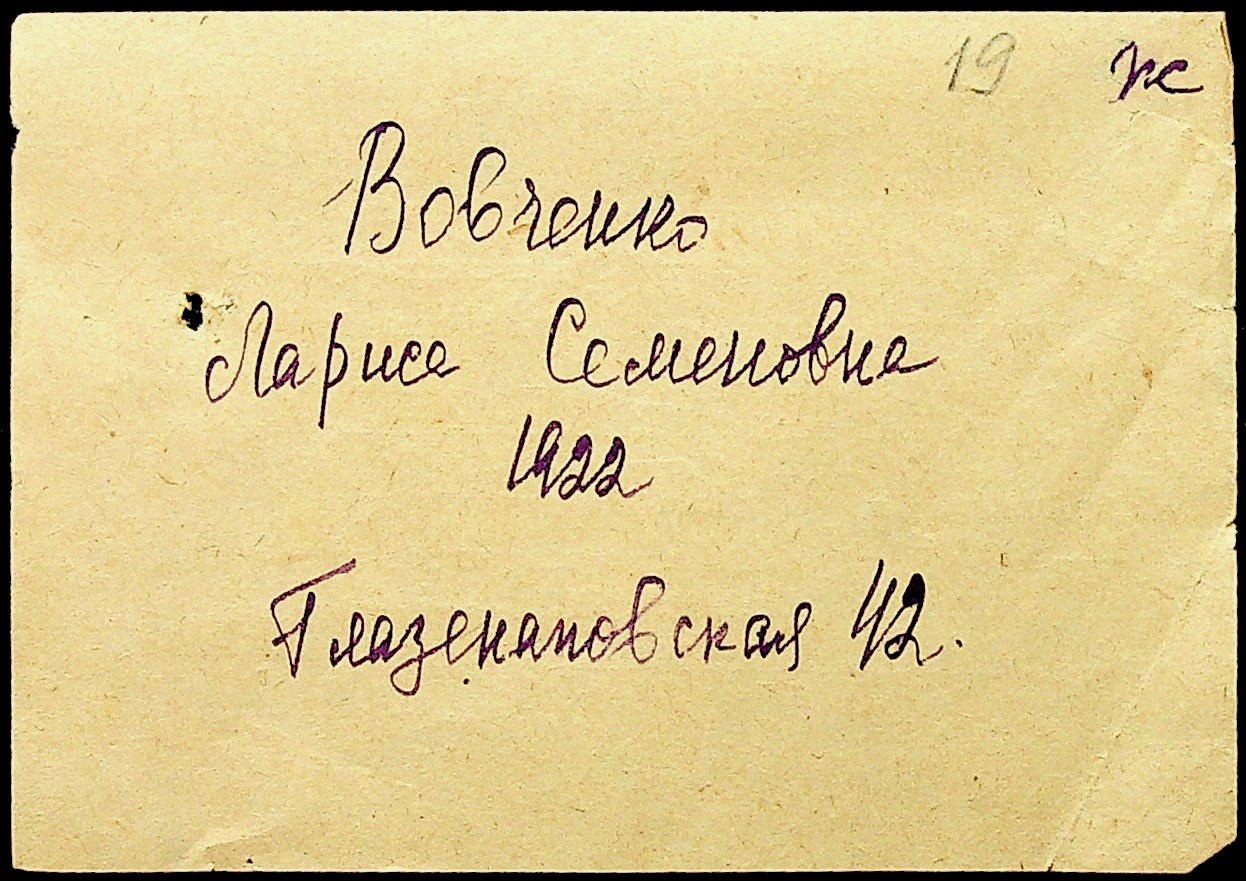 19 ж
Вовченко
Лариса Семеновна
1922
Глазенаповская 42.